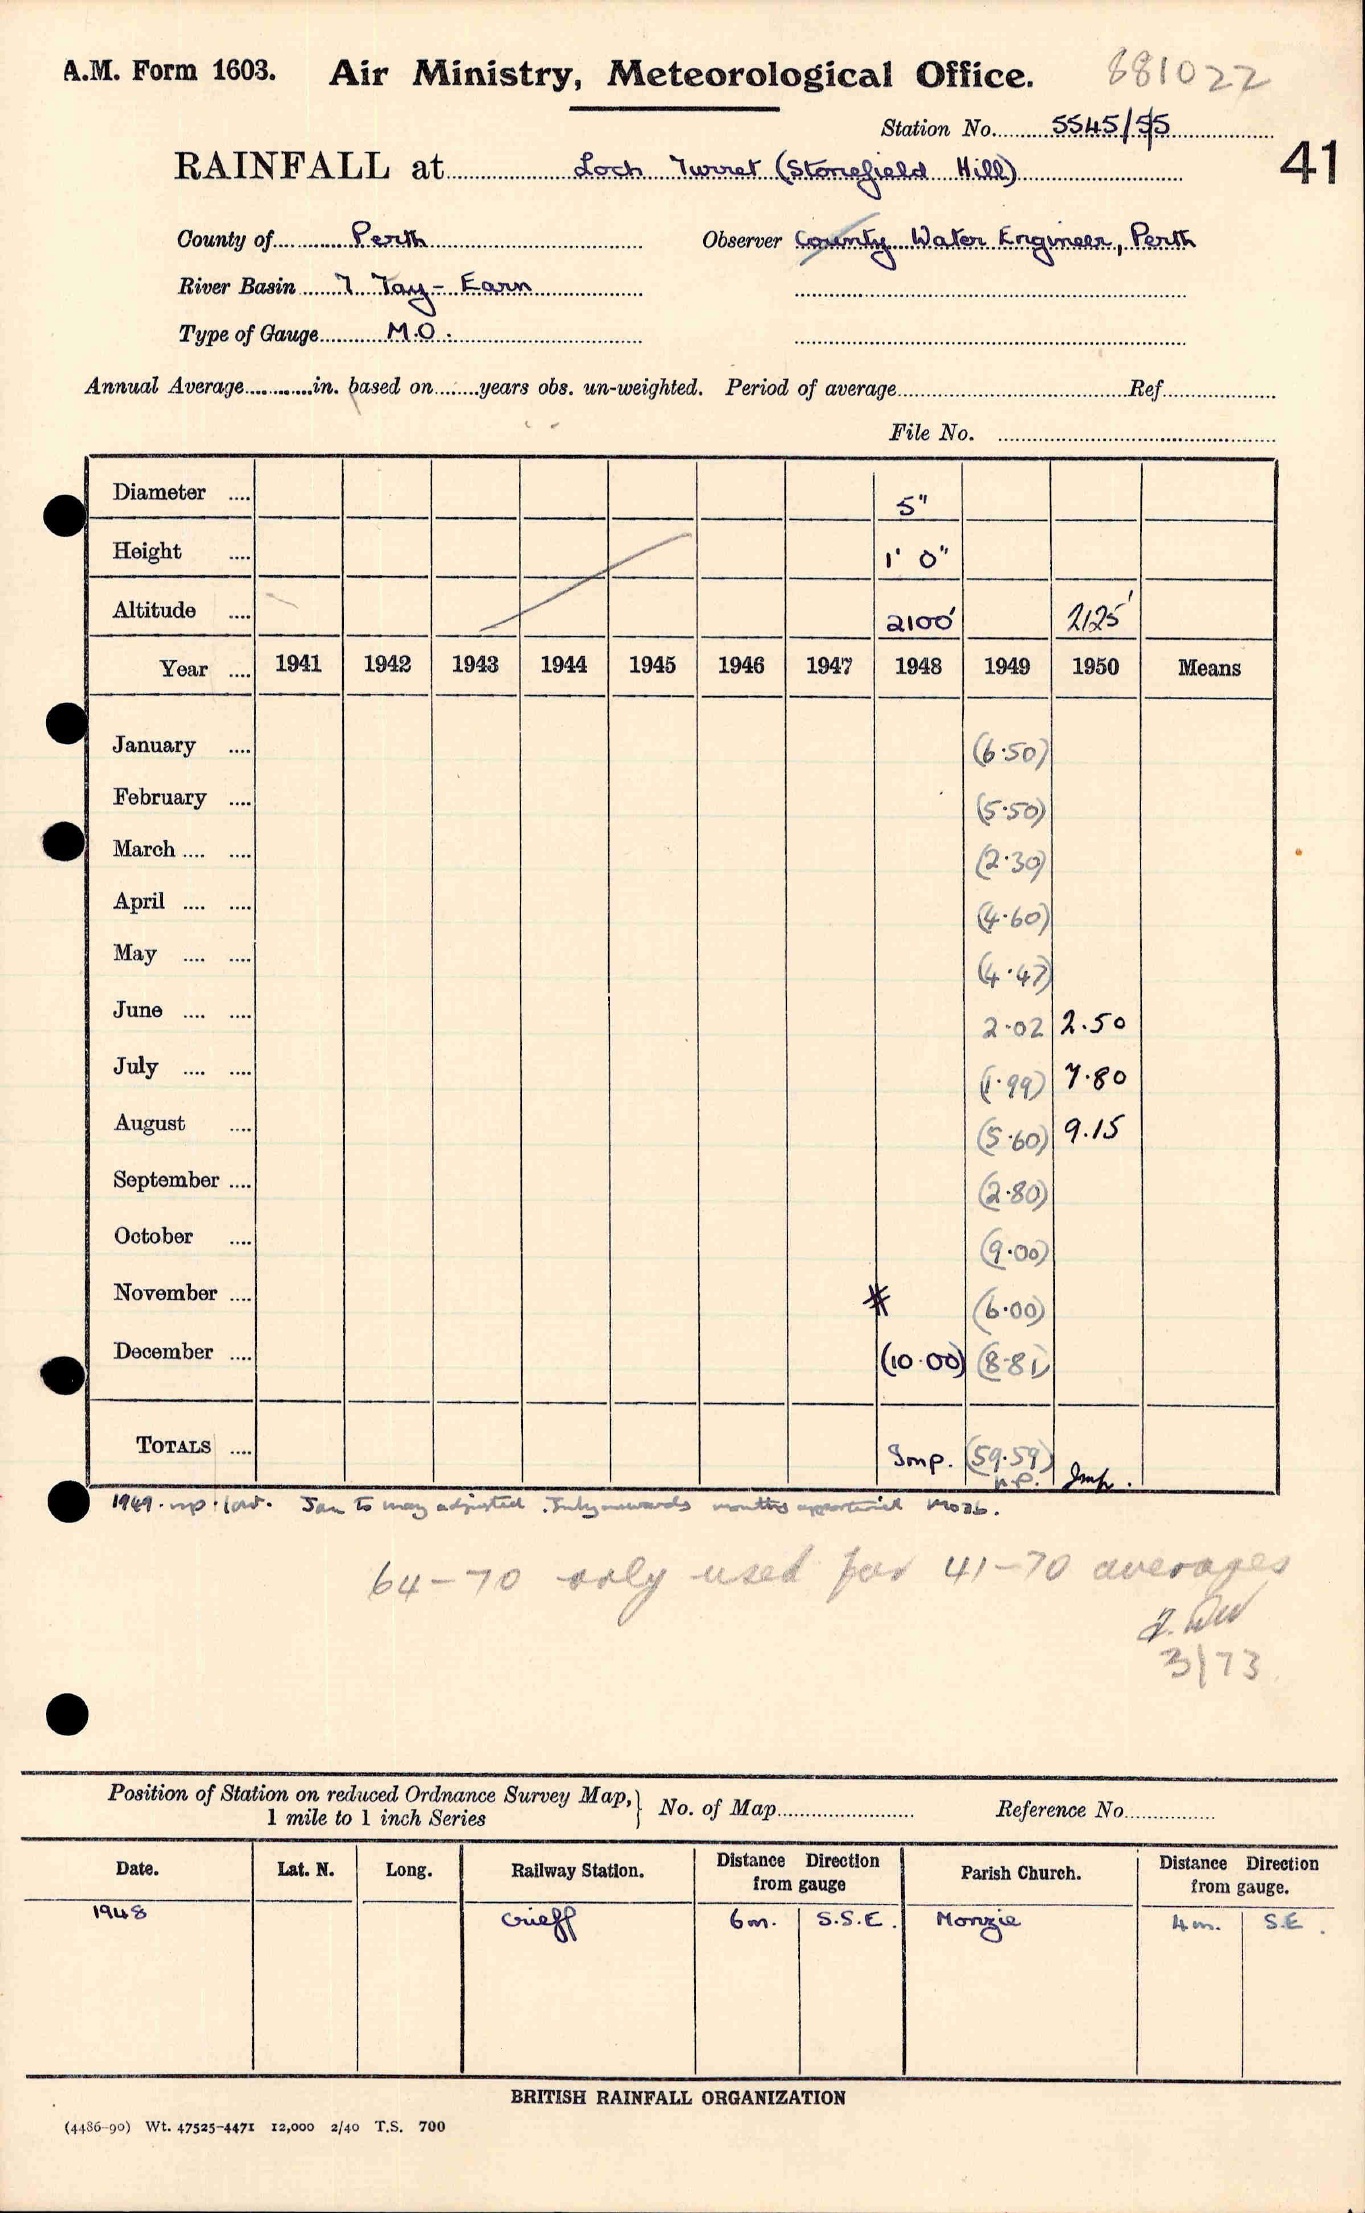 A.M. Form 1603. Air Ministry, Meteorological Office. 881022
Station No. 5545/55
41
RAINFALL at Loch Turret (Stonefield Hill)
County of Perth Observer County Water Engineer, Perth
River Basin 7 Tay - Earn
Type of Gauge M.O.
Annual Average in. based on years obs. un-weighted. Period of average Ref
File No.
Diameter 5"
Height 1' 0"
Altitude 2100' 2125'
Year 1941 1942 1943 1944 1945 1946 1947 1948 1949 1950 Means
January (6.50)
February (5.50)
March (2.30)
April (4.60)
May (4.47)
June 2.02 2.50
July (1.99) 7.80
August (5.60) 9.15
September (2.80)
October (9.00)
November (6.00)
December (10.00) (8.81)
TOTALS Imp. (59.59) Imp.
n.p.
1949. Jan to may adjusted. July onwards months apportioned
64-70 only used for 41-70 averages
3/73
Position of Station on reduced Ordnance Survey Map, No. of Map Reference No.
1 mile to 1 inch Series
Date. Lat. N. Long. Railway Station. Distance Direction from gauge Parish Church. Distance Direction from gauge.
1948 Crieff 6m. S.S.E. Monzie 4m. S.E.
BRITISH RAINFALL ORGANIZATION
(4486-90) Wt. 47525-4471 12,000 2/40 T.S. 700